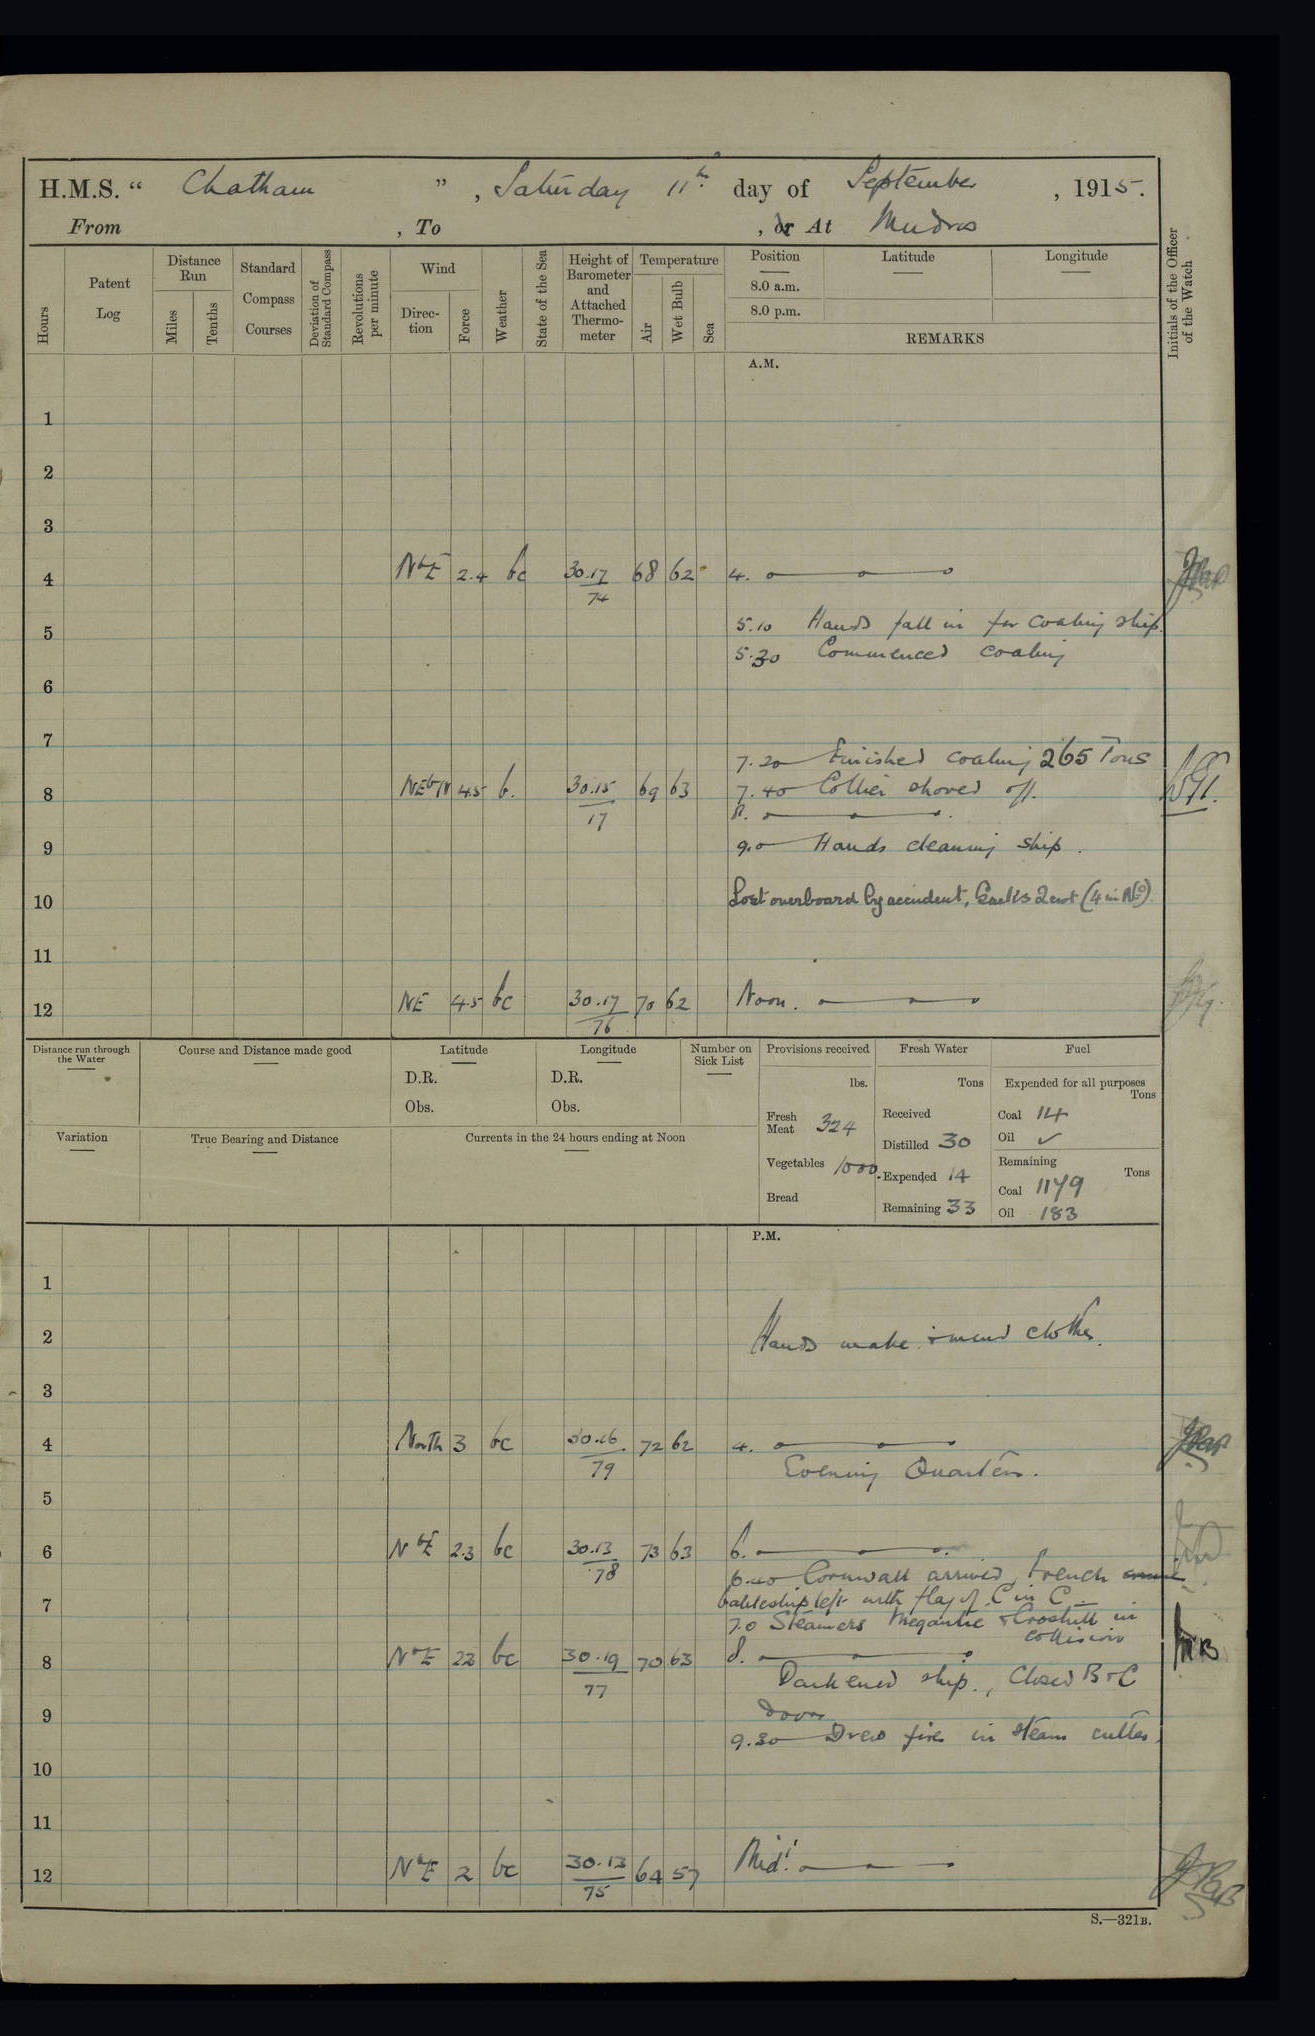 H.M.S. “ Chatham ” , Saturday 11th day of September , 1915.
From , To , or At Mudros
Hours
Patent Log
Distance Run
Miles
Tenths
Standard Compass Courses
Deviation of Standard Compass
Revolutions per minute
Wind
Direc-tion
Force
Weather
State of the Sea
Height of Barometer and Attached Thermo-meter
Temperature
Air
Wet Bulb
Sea
Position
Latitude
Longitude
8.0 a.m.
8.0 p.m.
REMARKS
Initials of the Officer of the Watch
A.M.
1
2
3
4 NbE 2.4 bc 30.17 68 62 4.
74
5.10 Hands fall in for coaling ship.
5
5.30 Commenced coaling
6
7
7.20 Finished coaling 265 Tons
8 NEbN 4.5 b. 30.15 69 63 7.40 Collier shoved off.
17 8.
9 9.0 Hands cleaning ship.
10 Lost overboard by accident, Sacks 2cwt (4 in No)
11
12 NE 4.5 bc 30.17 70 62 Noon.
76
Distance run through the Water
Course and Distance made good
Latitude
D.R.
Obs.
Longitude
D.R.
Obs.
Number on Sick List
Provisions received
lbs.
Fresh Meat 324
Vegetables 1000
Bread
Fresh Water
Tons
Received
Distilled 30
Expended 14
Remaining 33
Fuel
Expended for all purposes
Tons
Coal 14
Oil ✓
Remaining
Tons
Coal 1179
Oil 183
Variation
True Bearing and Distance
Currents in the 24 hours ending at Noon
P.M.
1
2 Hands make & mend clothes.
3
4 North 3 bc 30.16 72 62 4.
79 Evening Quarters.
5
6 NbE 2.3 bc 30.13 73 63 6.
78 6.40 Cornwall arrived, French
battleship left with flag of C in C
7 7.0 Steamers Megantic & Croshill in
collision
8 NbE 23 bc 30.19 70 63 8.
77 Darkened ship, Closed B & C
doors
9
9.30 Drew fires in steam cutter.
10
11
12 NbE 2 bc 30.13 64 57 Midt.
75
S.—321B.